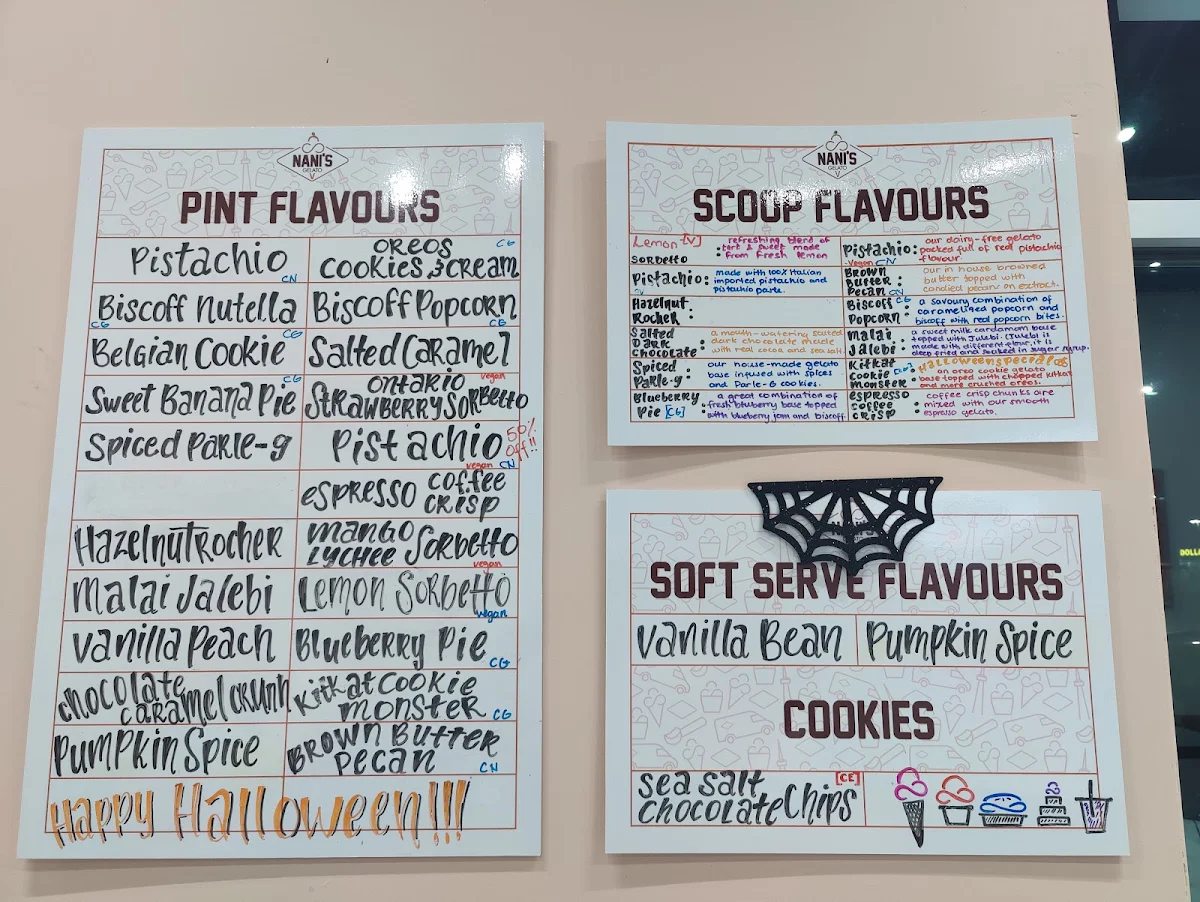 NANI'S
GELATO
PINT FLAVOURS
Pistachio CN
OREOS CG
COOKIES & CREAM
Biscoff Nutella CG
Biscoff Popcorn CG
Belgian Cookie CG
Salted Caramel
Sweet Banana Pie CG
ONTARIO vegan
STRAWBERRY SORBETTO
Spiced Parle-g
Pistachio 50%
Off!!
vegan CN
espresso coffee
crisp
Hazelnut Rocher
mango
LYCHEE Sorbetto
vegan
malai Jalebi
Lemon Sorbetto
vegan
vanilla Peach
Blueberry Pie CG
chocolate
caramel crunh
Kitkat Cookie
monster CG
Pumpkin Spice
Brown Butter
Pecan CN
Happy Halloween!!!
NANI'S
GELATO
SCOOP FLAVOURS
Lemon [V]
Sorbetto :
refreshing blend of
tart & sweet made
from fresh lemon
Pistachio:
vegan CN
our dairy-free gelato
packed full of real pistachio
flavour.
Pistachio:
made with 100% Italian
imported pistachio and
pistachio paste.
Brown
Butter :
Pecan CN
our in house browned
butter topped with
candied pecan on extract.
Hazelnut
Rocher :
Biscoff CG
Popcorn :
a savoury combination of
caramelined popcorn and
biscoff with real popcorn bites.
Salted
Dark :
Chocolate
a mouth-watering salted
dark chocolate made
with real cocoa and sea salt.
Malai
Jalebi :
a sweet milk cardamom base
topped with Julebi. (Julebi is
made with different flour, it is
deep fried and soaked in sugar syrup.
Spiced
Parle-g :
our house-made gelato
base infused with spices
and Parle-G cookies.
Kitkat
cookie
monster :
Halloween special
an oreo cookie gelato
base topped with chopped kitkat
and more crushed oreos.
Blueberry
Pie [CG] :
a great combination of
fresh bluberry base topped
with blueberry jam and biscoff.
espresso
coffee :
crisp
coffee crisp chunks are
mixed with our smooth
espresso gelato.
SOFT SERVE FLAVOURS
Vanilla Bean
Pumpkin Spice
COOKIES
sea salt [CE]
chocolate Chips
DOLL